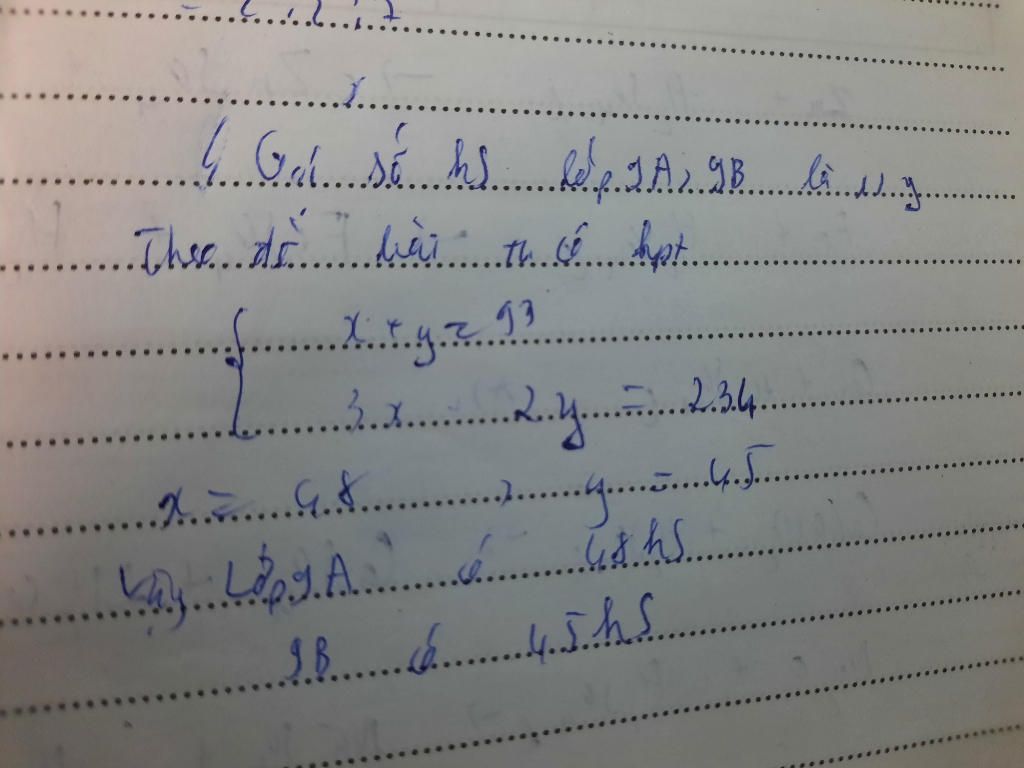 Gọi số hS lớp 9A, 9B là x, y
Theo đề bài ta có hpt
x + y = 93
3x 2y = 234
x = 48 , y = 45
Vậy Lớp 9A có 48 hS
9B có 45 hS